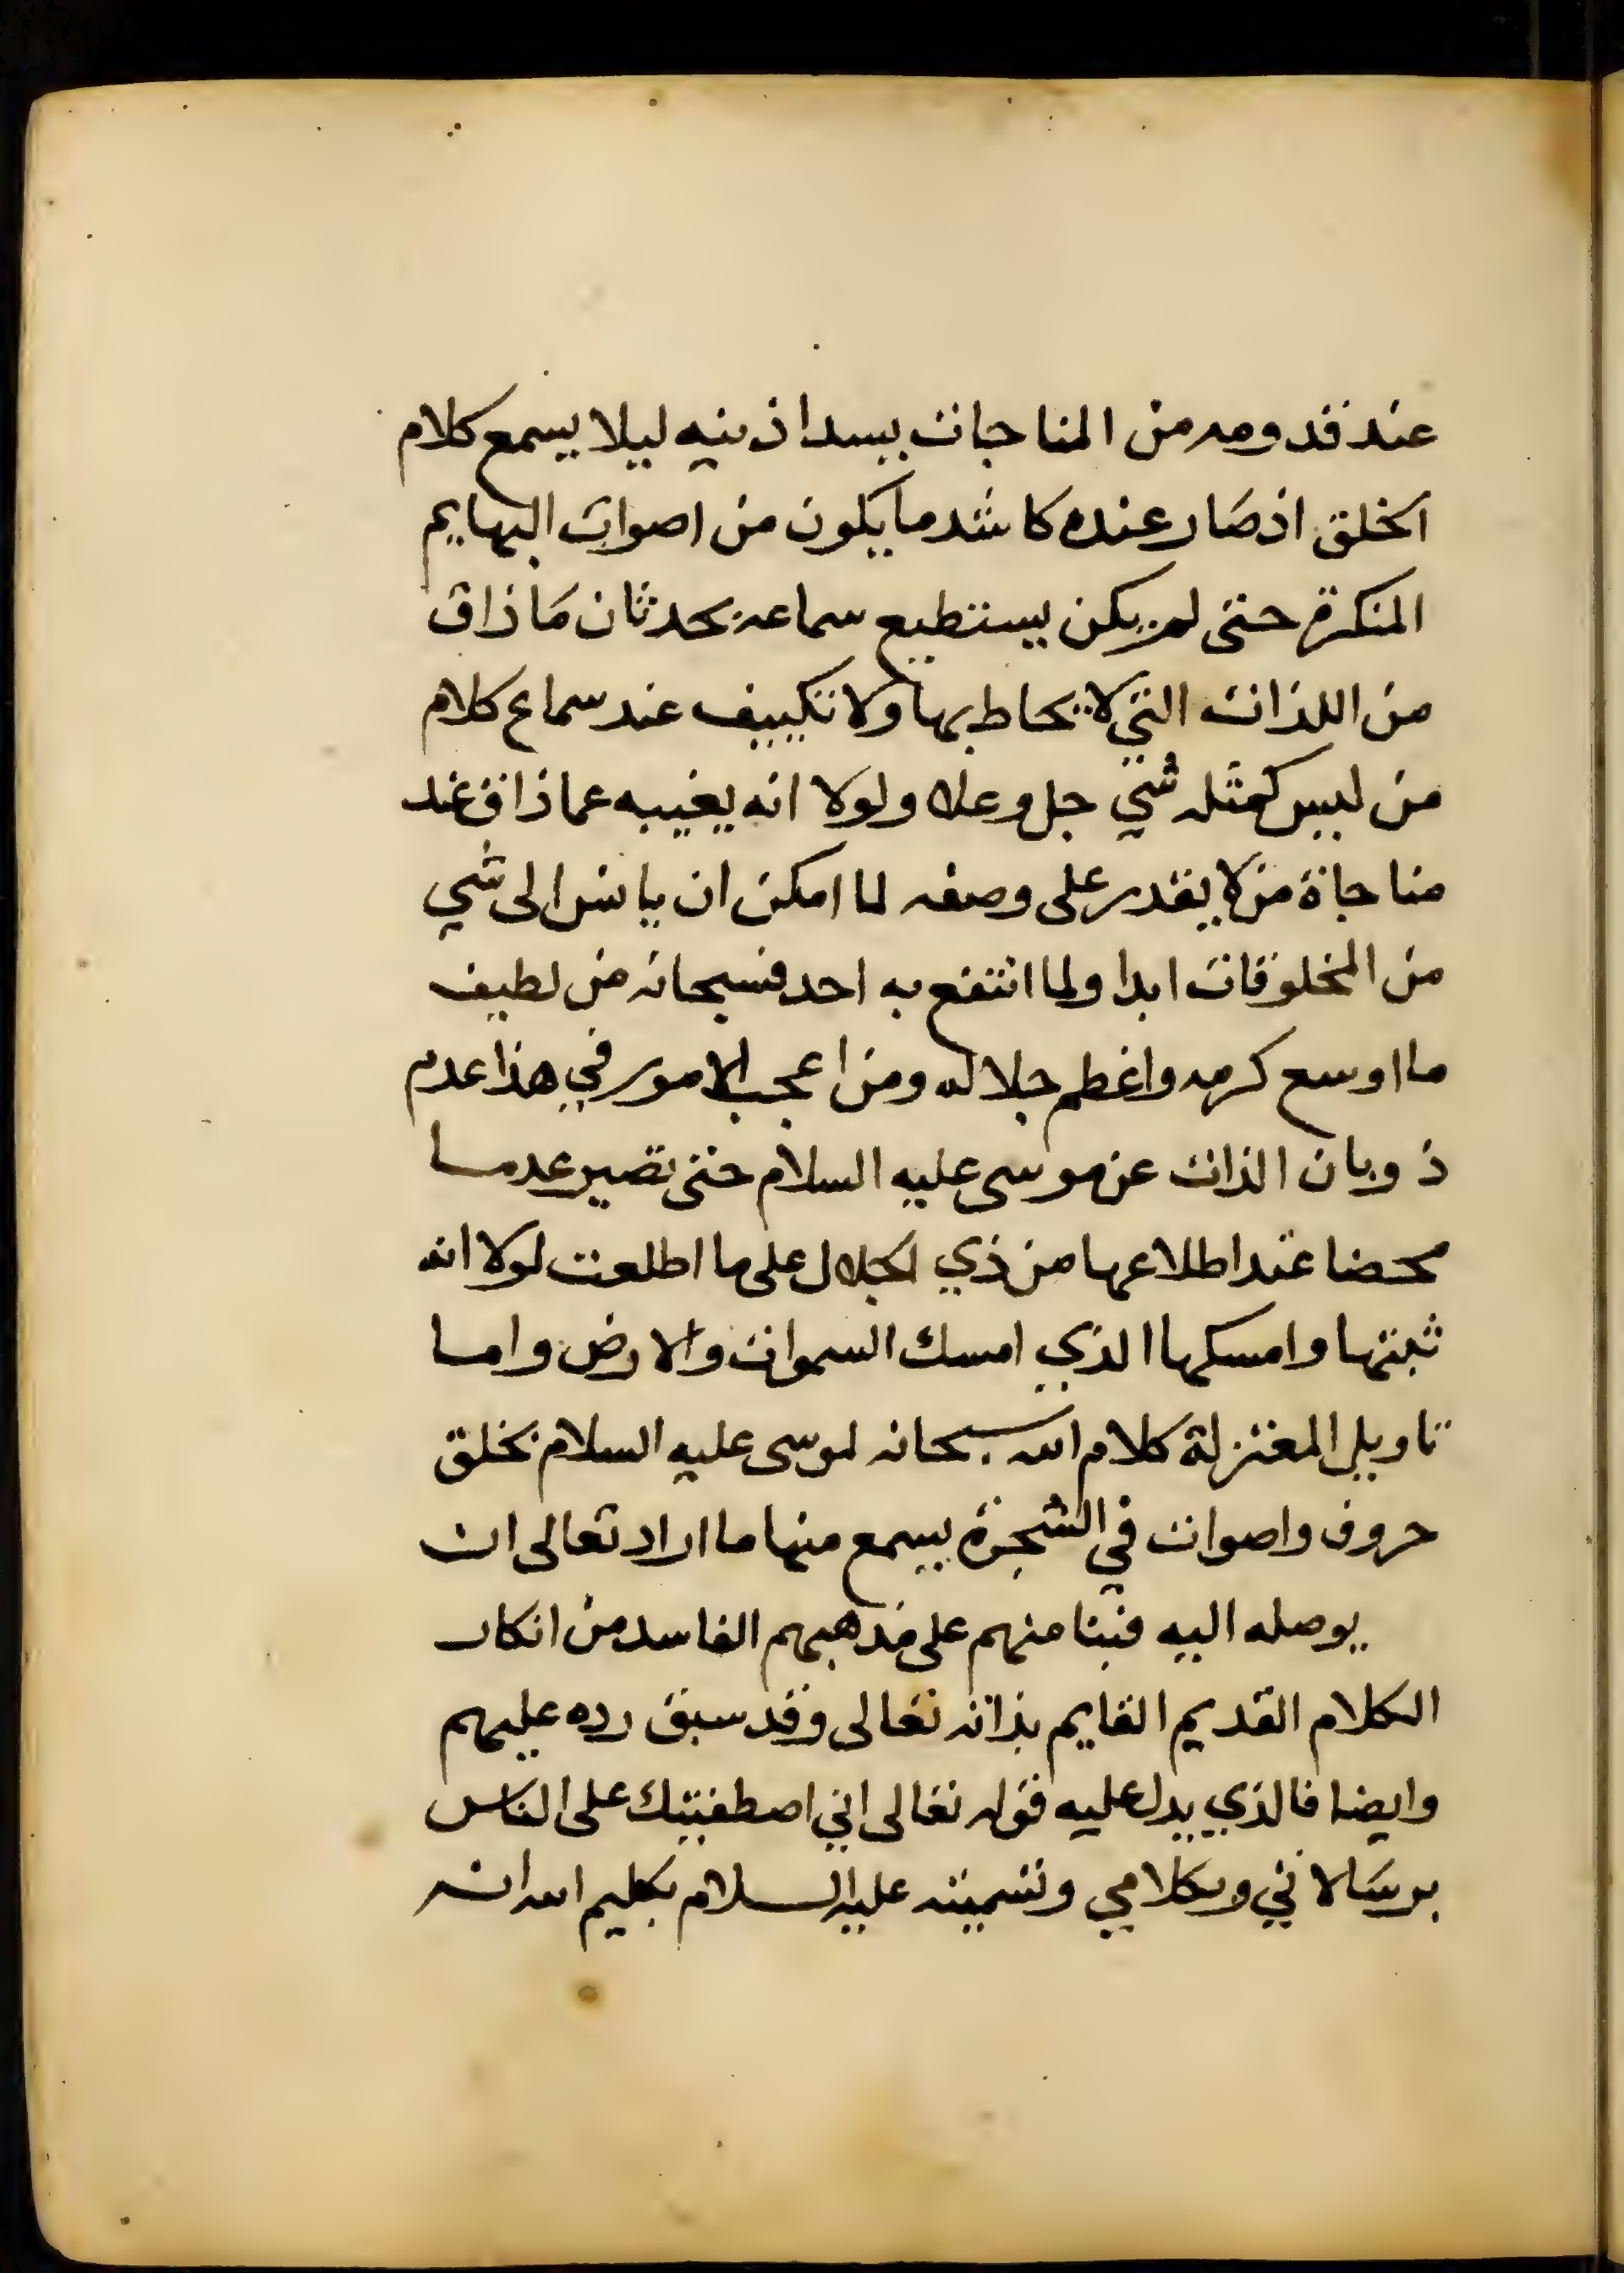 عند قدومه من المناجات يسد اذنيه ليلا يسمع كلام
الخلق اذ صار عنده كاشد ما يكون من اصوات البهايم
المنكرة حتى لم يكن يستطيع سماعه بحدثان ما ذاق
من اللذات التي لا يحاط بها ولا تكييف عند سماع كلام
من ليس كمثله شي جل وعلا ولولا انه يغيبه عما ذاق عند
مناجاة من لا يقدر على وصفه لما امكن ان يانس الى شي
من المخلوقات ابدا ولما انتفع به احد فسبحانه من لطيف
ما اوسع كرمه واعظم جلاله ومن اعجب الامور في هذا عدم
ذوبان الذات عن موسى عليه السلام حتى تصير عدما
محضا عند اطلاعها من ذي الجلال على ما اطلعت لولا انه
ثبتها وامسكها الذي امسك السموات والارض واما
تاويل المعتزلة كلام الله سبحانه لموسى عليه السلام بخلق
حروف واصوات في الشجرة يسمع منها ما اراد تعالى ان
يوصله اليه فبنا منهم على مذهبهم الفاسد من انكار
الكلام القديم القايم بذاته تعالى وقد سبق رده عليهم
وايضا فالذي يدل عليه قوله تعالى اني اصطفيتك على الناس
برسالاتي وبكلامي وتسميته عليه السلام بكليم الله انه